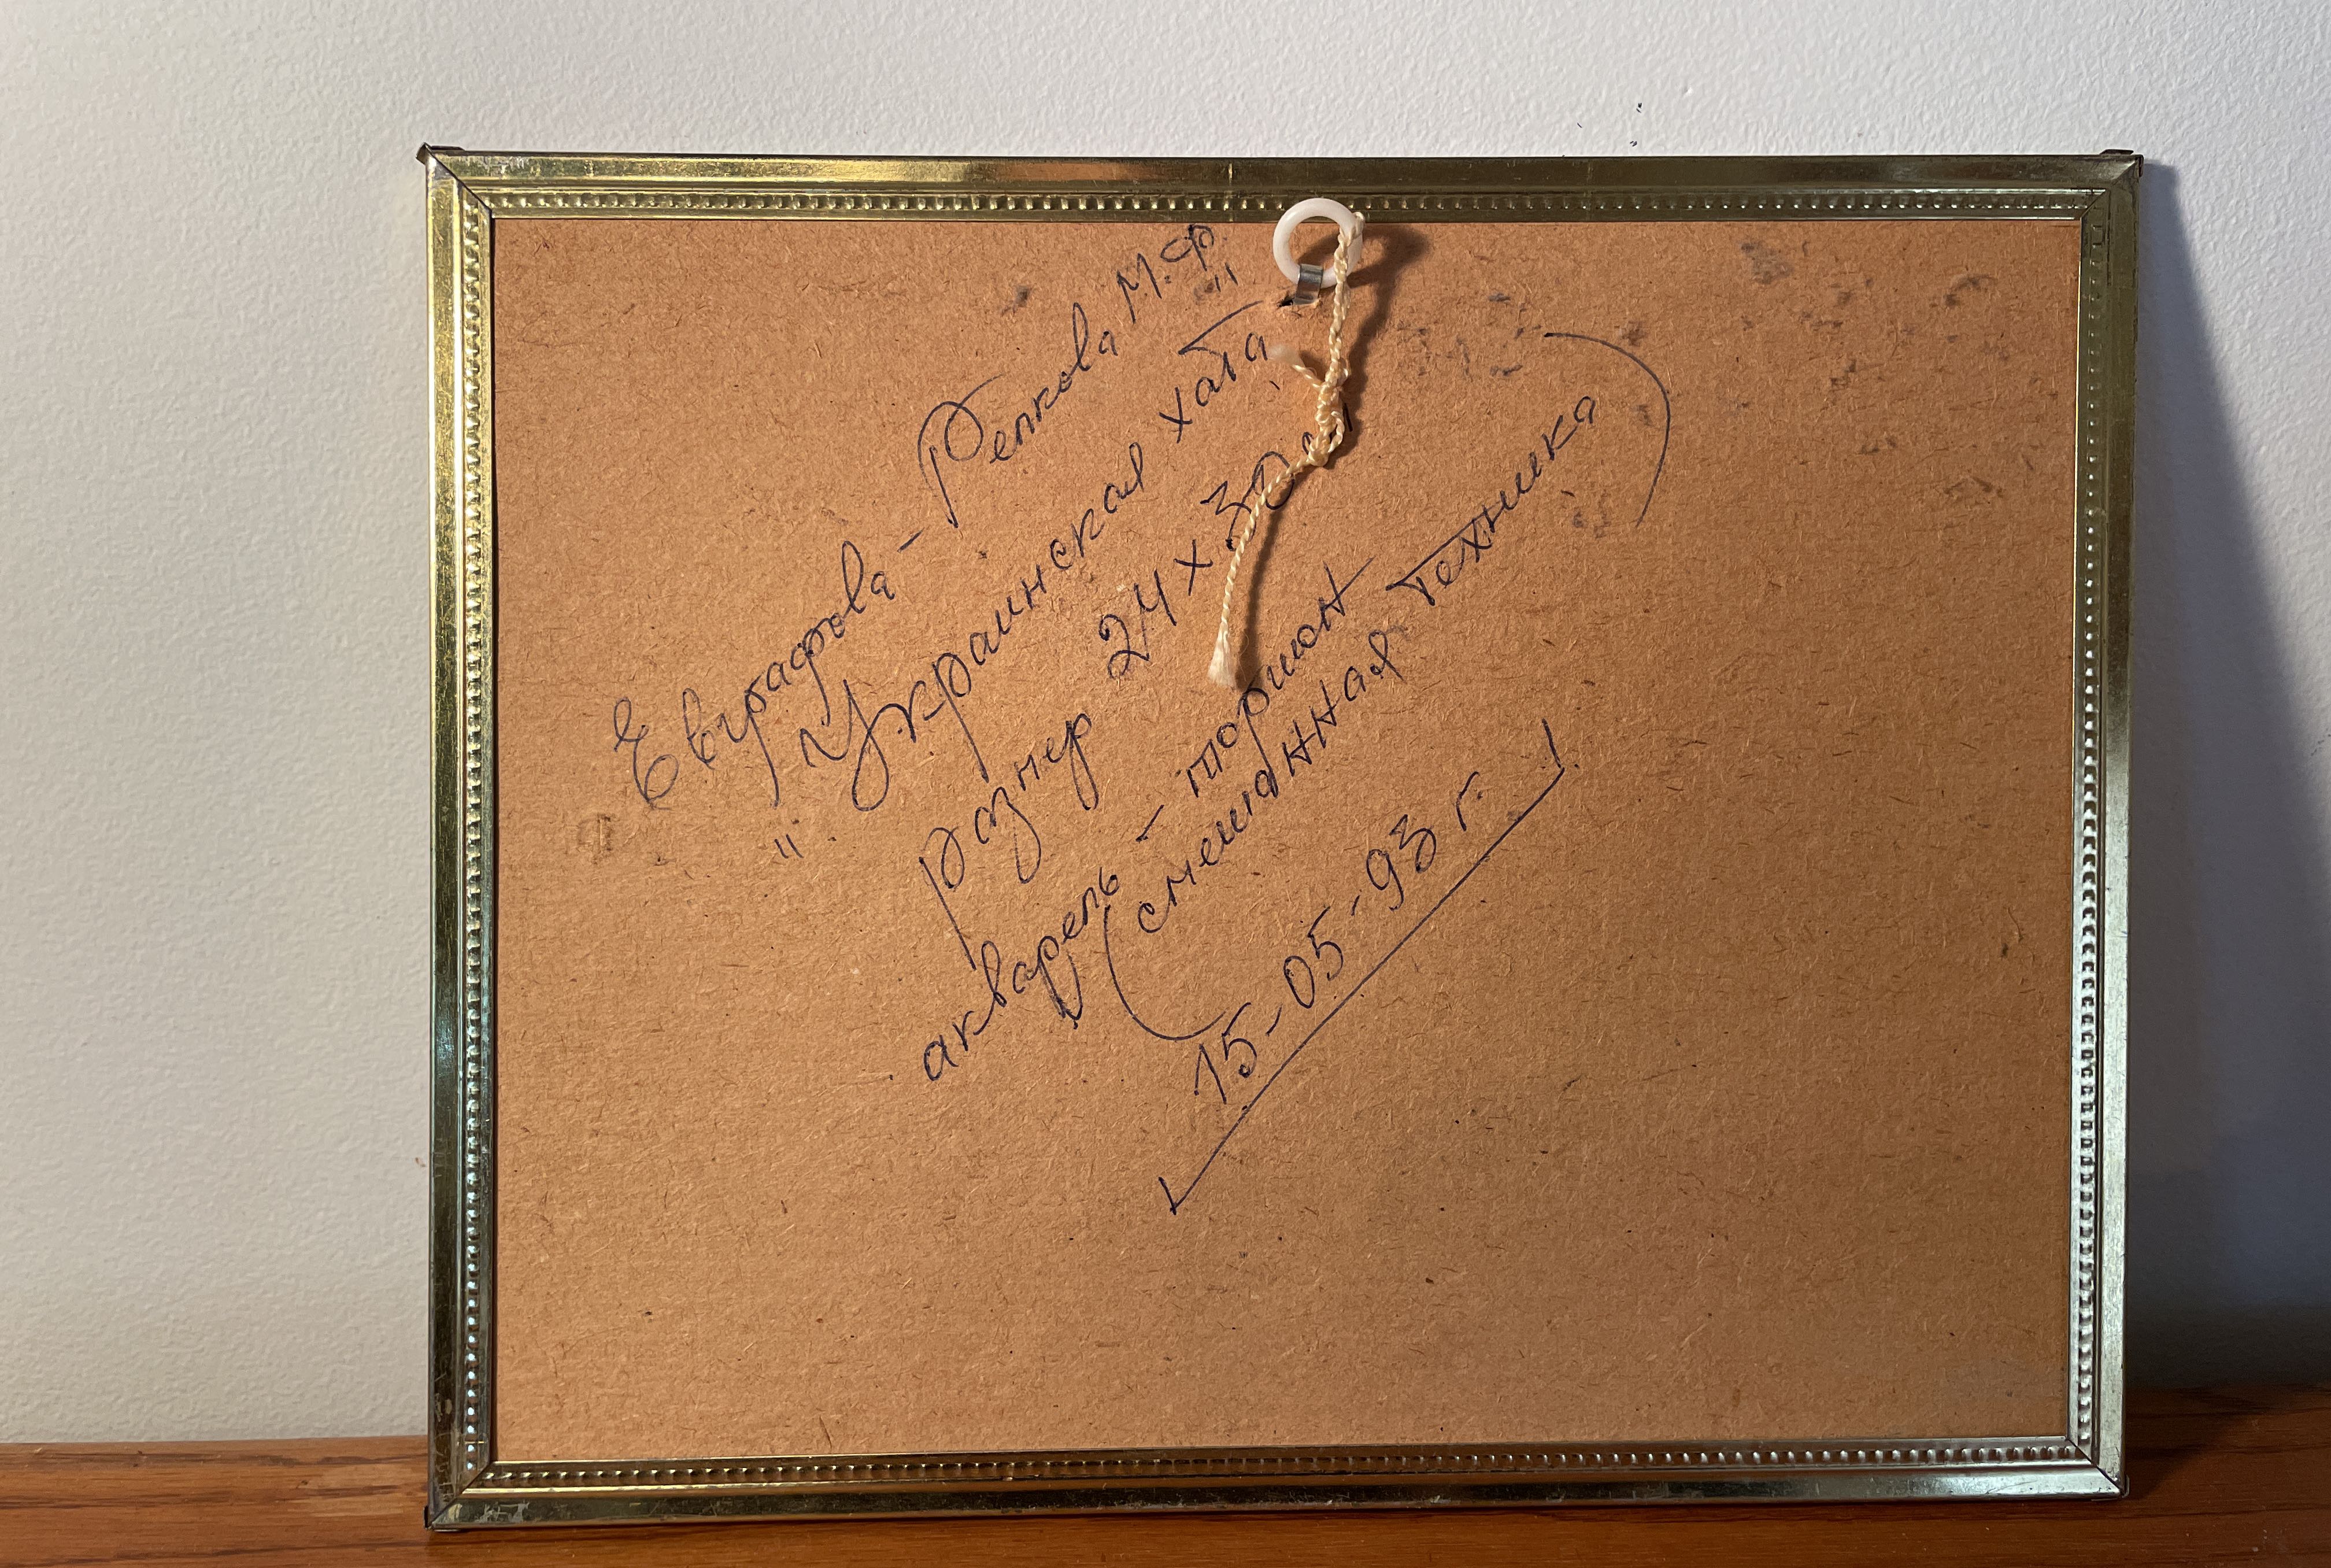 Евграфова - Репкова М.Ф.
"Украинская хата"
размер 24 х 30 см
акварель - торшон
(смешанная техника)
15-05-93 г.